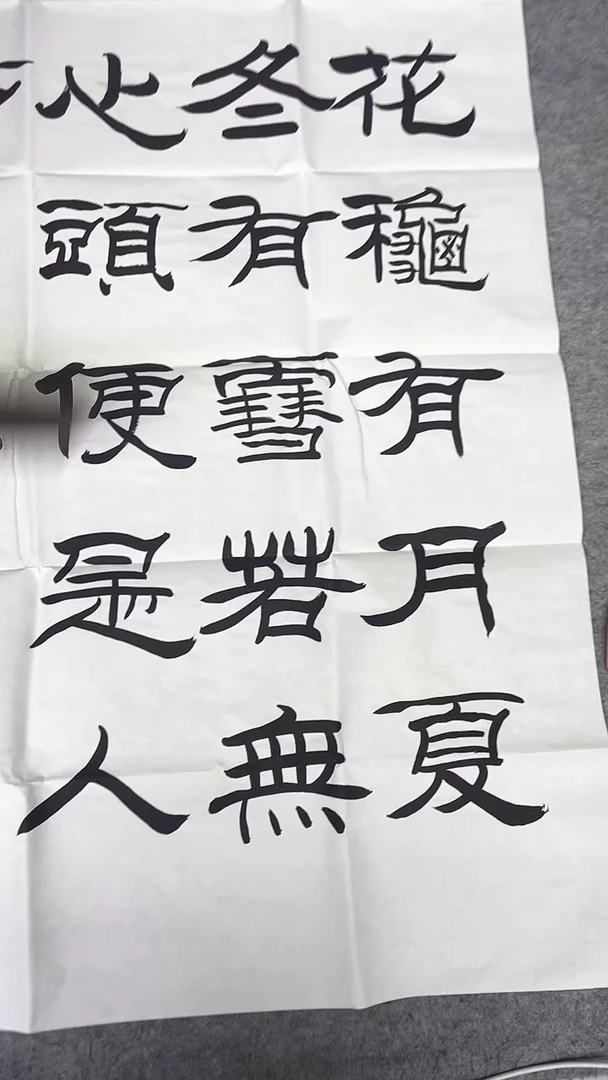 花龝有月夏
冬有䨮若無
心頭便是人